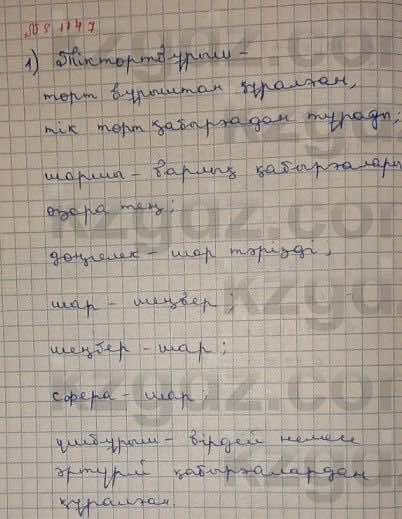 № 1147
1) Тіктөртбұрыш -
төрт бұрыштан құралған,
тік төрт қабырғадан тұрады;
шаршы - барлық қабырғалары
өзара тең;
дөңгелек - шар тәрізді,
шар - шеңбер;
шеңбер - шар;
сфера - шар,
үшбұрыш - бірдей немесе
әртүрлі қабырғалардан
құралған.
kzgdz.com